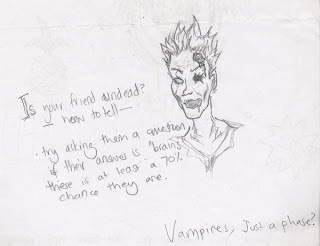 Is your friend undead?
how to tell—
• try asking them a question
if their answer is "brains"
there is at least a 70%
chance they are.
Vampires, Just a phase?